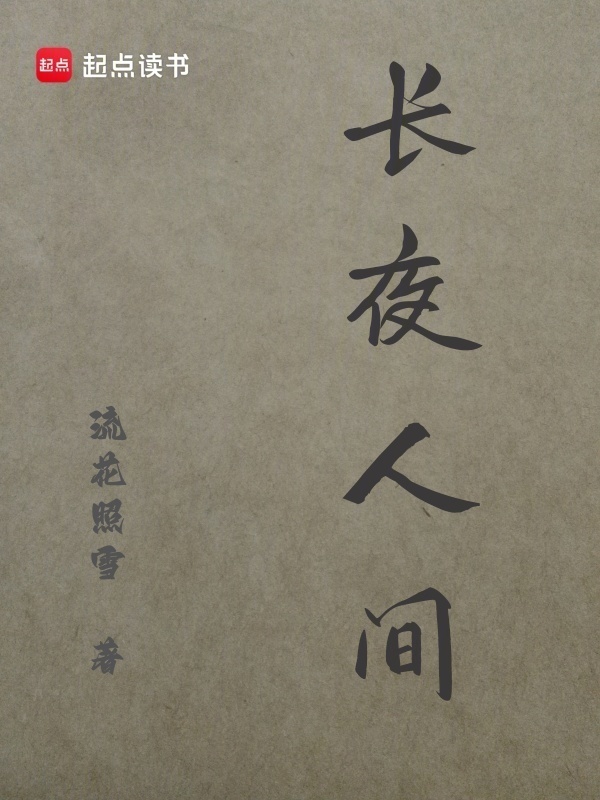 起点 起点读书
长夜人间
流花照雪 著